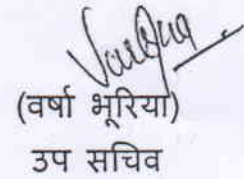 (वर्षा भूरिया)
उप सचिव